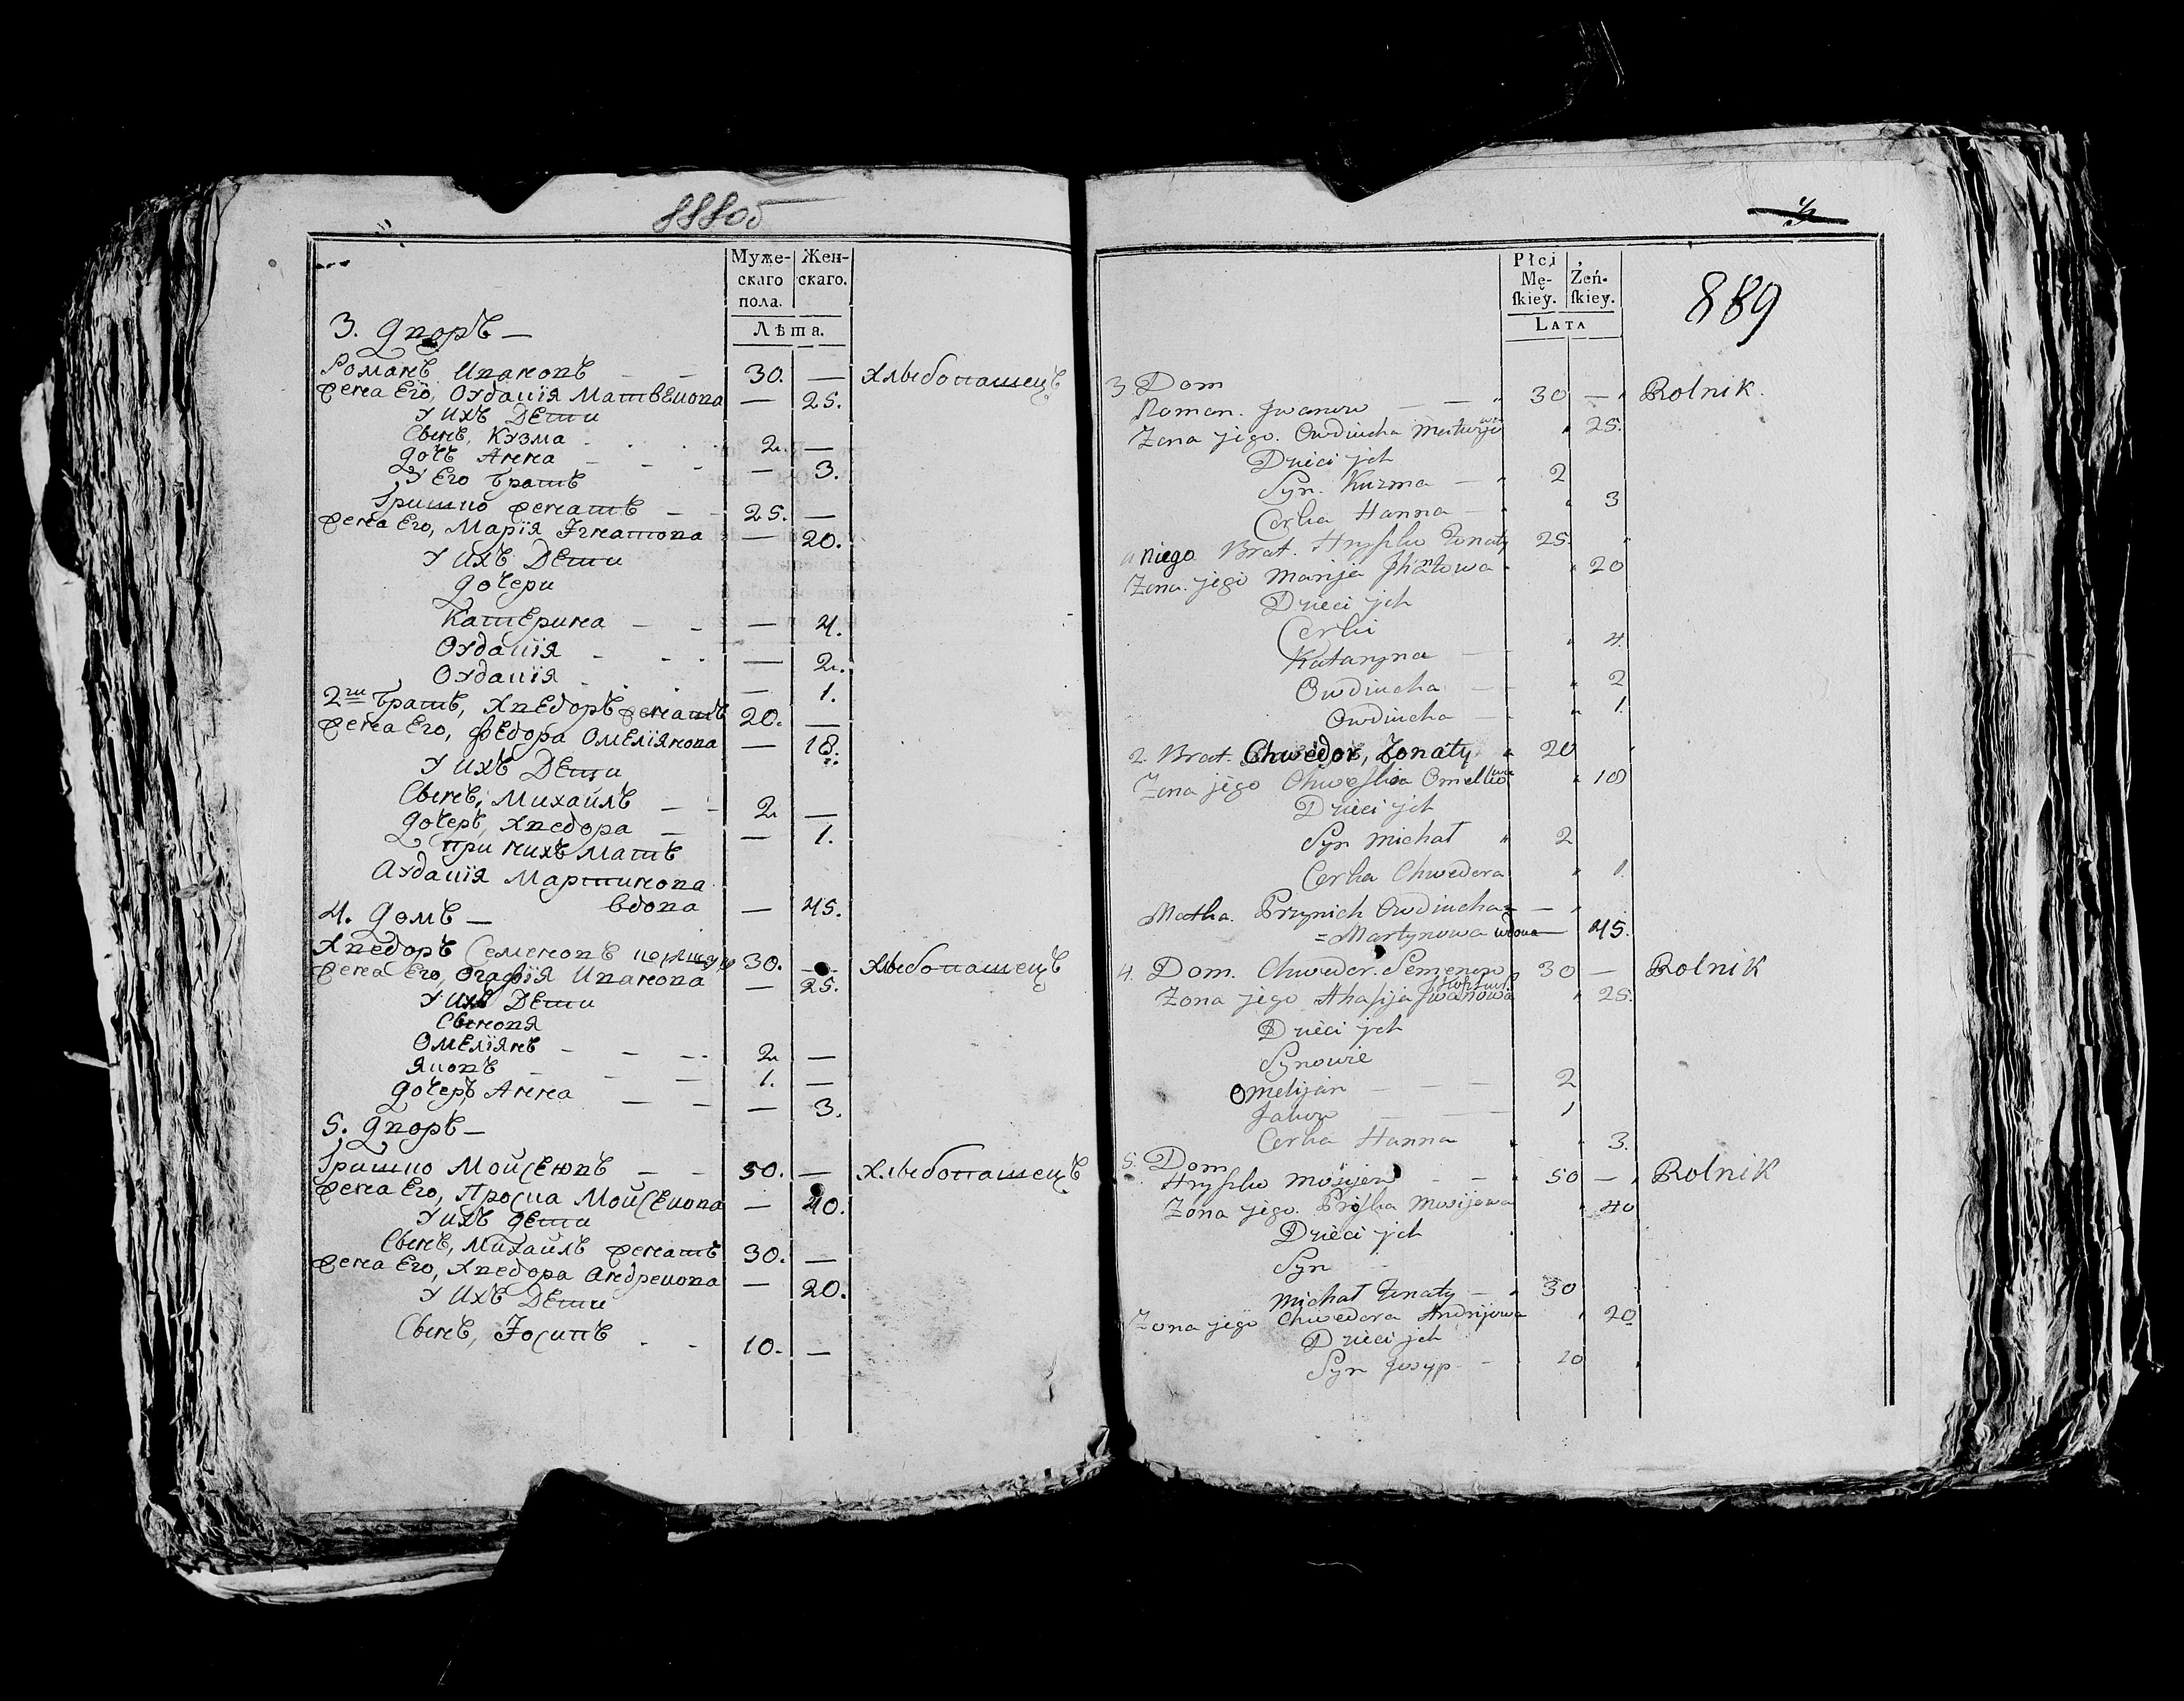 888об
Муже-
скаго
пола.
Жен-
скаго.
Лѣта.
3. Дворъ —
Романъ Ивановъ — — 30. — Хлѣбопашецъ
Жена Его, Овдакія Матвѣиова — 25.
У ихъ Дѣти
Сынъ, Кузма 2. —
Дочь Анна — — — 3.
У Его братъ
Гришко женатъ — — 25. —
Жена Его, Марія Игнатова — 20.
У ихъ Дѣти
Дочери
Катерина — — — 4.
Овдакія — 2.
Овдакія — 1.
2ги братъ, Хведоръ женатъ 20. —
Жена Его, Федора Омеліянова — 18.
У ихъ Дѣти
Сынъ, Михайлъ — — 2 —
Дочеръ, Хведора — — 1.
При нихъ Матъ
Авдакія Мартинова
вдова — 45.
4. Домъ —
Хведоръ Семеновъ 30. — Хлѣбопашецъ
Жена Его, Огафія Иванова — 25.
У ихъ Дѣти
Сыновя
Омеліянъ — — — 2 —
Яковъ — — — 1. —
Дочеръ Анна — — — 3.
5. Дворъ —
Гришко Мойсеювъ — — 50. — Хлѣбопашецъ
Жена Его, Проска Мойсеиова — 40.
У ихъ Дѣти
Сынъ, Михайлъ женатъ 30. —
Жена Его, Хведора Андреиова — 20.
У ихъ Дѣти
Сынъ, Іосипъ 10. —
889
Płci
Mę-
ſkiey.
Żeń-
ſkiey.
LATA
3. Dom
Roman. Jwanow — — 30 — Rolnik.
Zona jego. Owdiucha 25.
Dzieci jch
Syn. Kuzma — 2
Corka Hanna — 3
u niego Brat. Hryſzko Żonaty 25.
Zona jego Marija Jhnatowa 20
Dzieci jch
Corki
Kataryna — 4.
Owdiucha — 2
Owdiucha — 1.
2. Brat. Chwedor, Żonaty 20
Zona jego 18
Dzieci jch
Syn Michał 2
Corka Chwedora 1.
Matka. Przynich Owdiucha =
= Martynowa wdowa — 45.
4. Dom. Chwedor. Semenow 30 — Rolnik
Zona jego Ahafija Jwanowa 25.
Dzieci jch
Synowie
Omelijan — — — 2
Jakow — — — 1
Corka Hanna 3.
5. Dom
Hryſzko Mosijow — — 50 — Rolnik
Zona jego. Pryſka Mosijowa 40
Dzieci jch
Syn
Michał Żonaty — 30
Zona jego Chwedora Andrijowa 20
Dzieci jch
Syn Josyp — 10